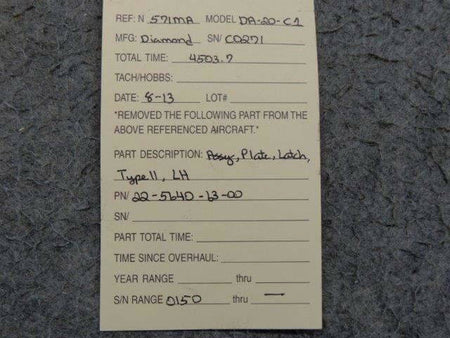 REF: N 571MA MODEL DA-20-C1
MFG: Diamond SN/ C0271
TOTAL TIME: 4503.7
TACH/HOBBS:
DATE: 8-13 LOT#
"REMOVED THE FOLLOWING PART FROM THE
ABOVE REFERENCED AIRCRAFT."
PART DESCRIPTION: Assy, Plate, Latch,
Type II, LH
PN/ 22-5640-13-00
SN/
PART TOTAL TIME:
TIME SINCE OVERHAUL:
YEAR RANGE thru
S/N RANGE 0150 thru —